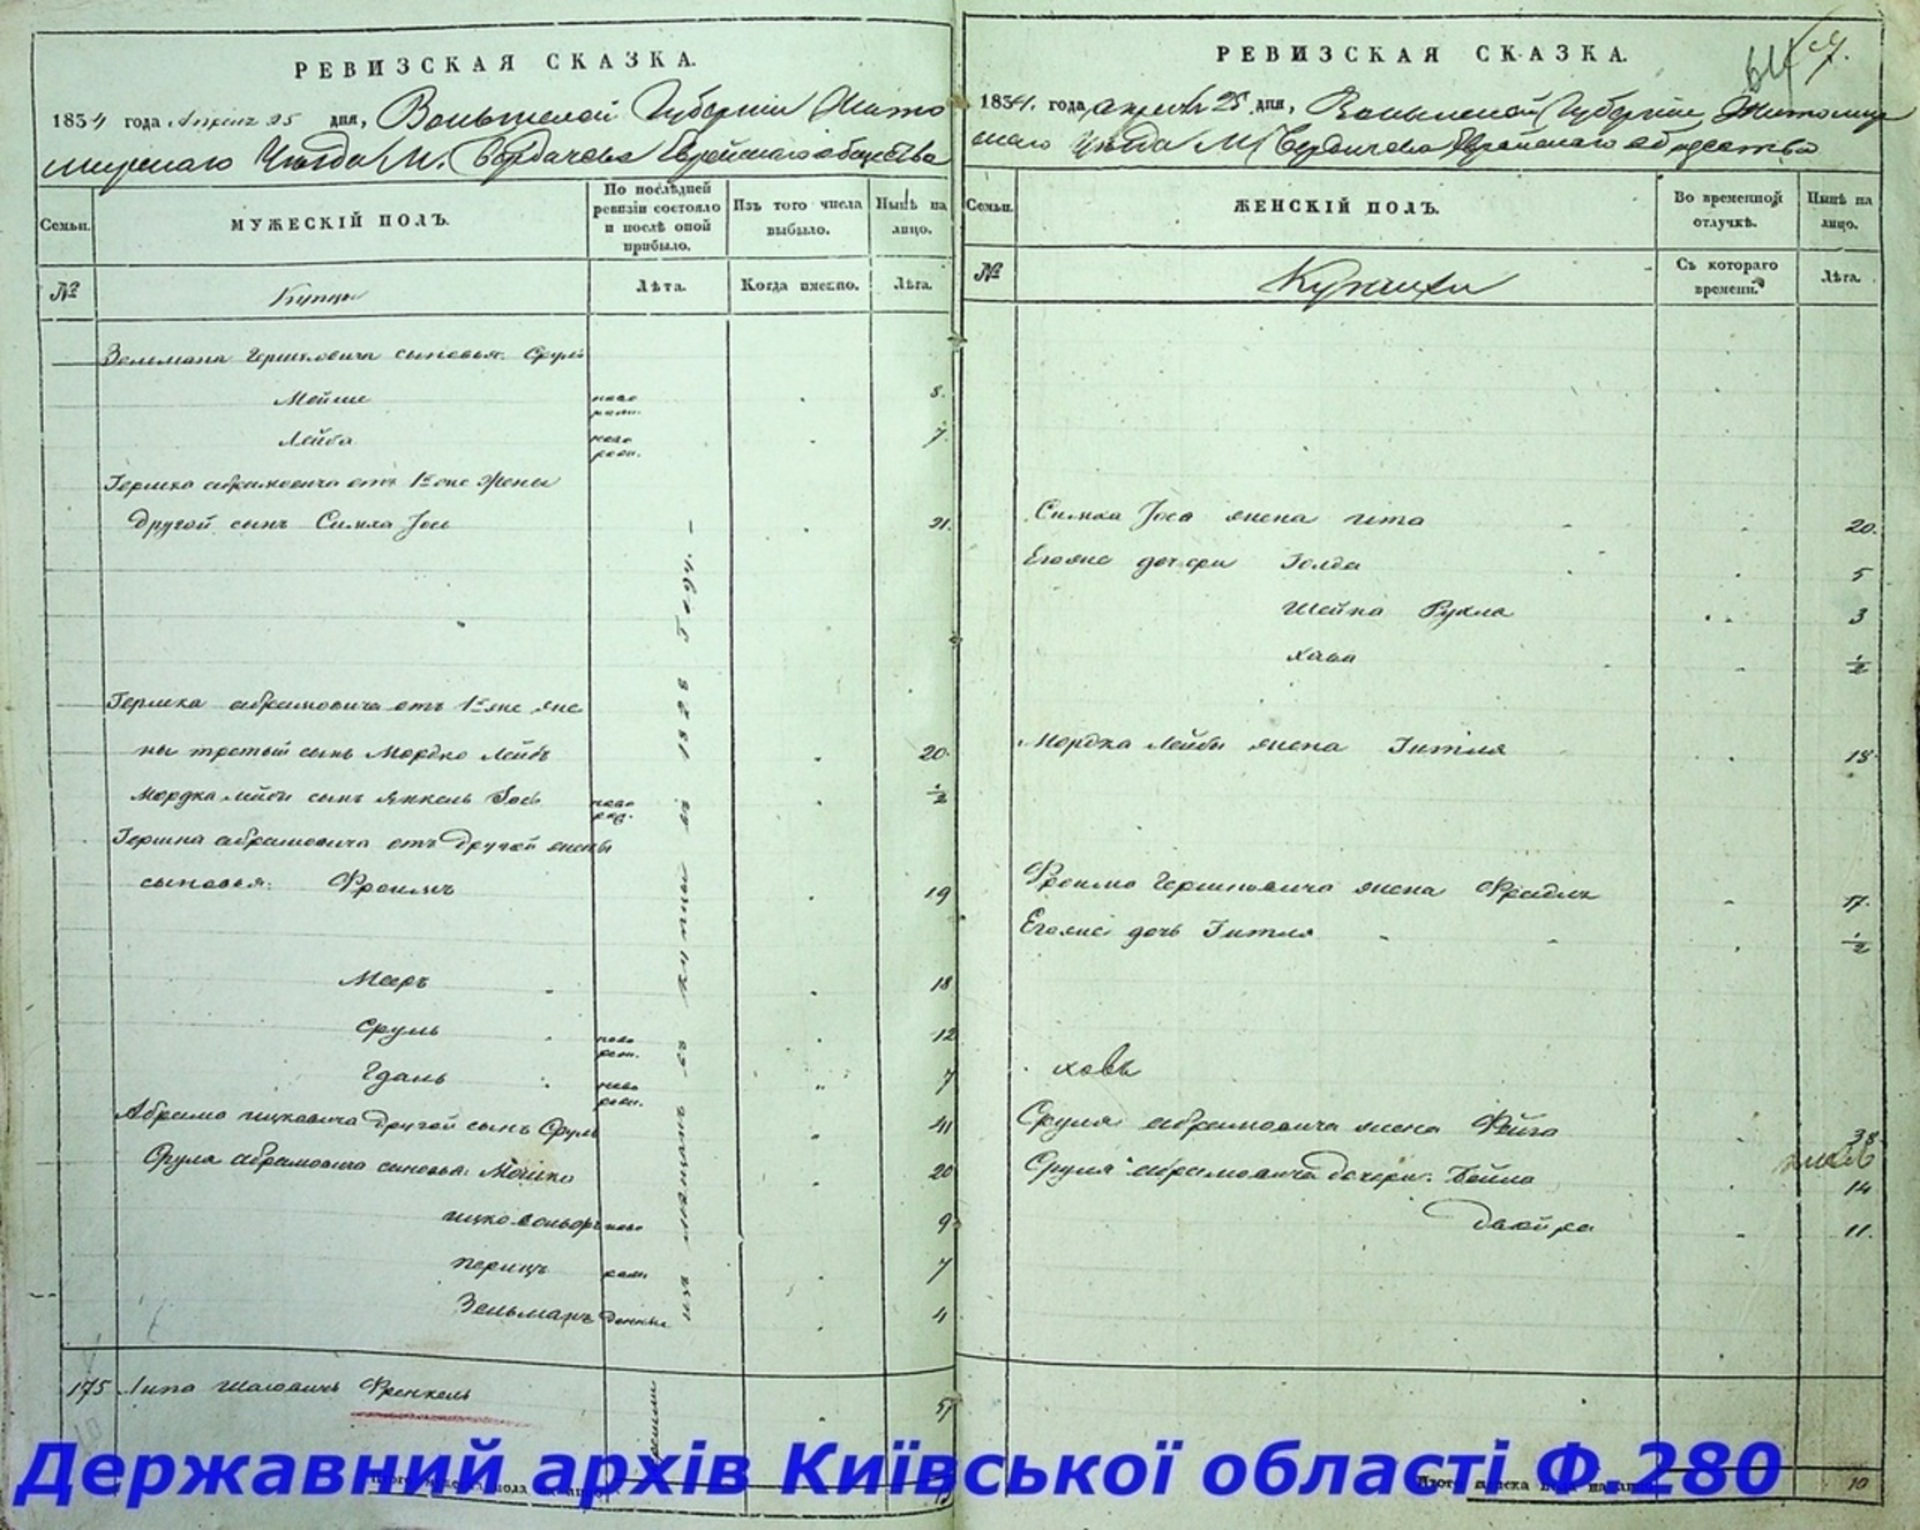 РЕВИЗСКАЯ СКАЗКА.
1834 года Апреля 25 дня, Волынской Губернии Жито
мирскаго Уезда М. Бердичева Еврейскаго общества
Семьи.
МУЖЕСКІЙ ПОЛЪ.
По послѣдней ревизіи состояло и послѣ оной прибыло.
Изъ того числа выбыло.
Нынѣ на лицо.
№
Купцы
Лѣта.
Когда именно.
Лѣта.
Зельмана Гершковича сыновья: Сруль
Мойше ново рожд. 8.
Лейба ново рожд. 7
Гершка Абрамовича отъ 1й же жены
другой сынъ Симха Іос 21.
Гершка Абрамовича отъ 1й же же
ны третый сынъ Мордко Лейбъ 20.
Мордка Лейбы сынъ Янкель ново рож. ½
Гершка Абрамовича отъ другой жены
сыновья: Фроимъ 19
Мееръ 18
Сруль ново рож. 12
ново рожд. 7
Абрамо Ицковича другой сынъ Сруль 41
Сруля Абрамовича сыновья: Мошко 20
Ицко Вольфъ ново 9
Перецъ рож 7
Зельманъ денные 4
изъ мещанъ въ купцы въ 1828 году.
175 Липа Френкель 51
РЕВИЗСКАЯ СКАЗКА.
1834. года Апреля 25 дня, Волынской Губернии Житомир
скаго Уезда М. Бердичева Еврейскаго общества
Семьи.
ЖЕНСКІЙ ПОЛЪ.
Во временной отлучкѣ.
Нынѣ на лицо.
№
Купчихи
Съ котораго времени.
Лѣта.
Симха Іоса жена Гита 20.
Его же дочери Голда 5
Шейна Рухля 3
Хава ½
Мордка Лейбы жена Гитля 18
Фроима Гершковича жена Фрейда 17.
Его же дочь Гитля ½
Сруля Абрамовича жена Фейга 38
Сруля Абрамовича дочери: Бейла 14
Двойра 11.
10
Державний архів Київської області Ф.280